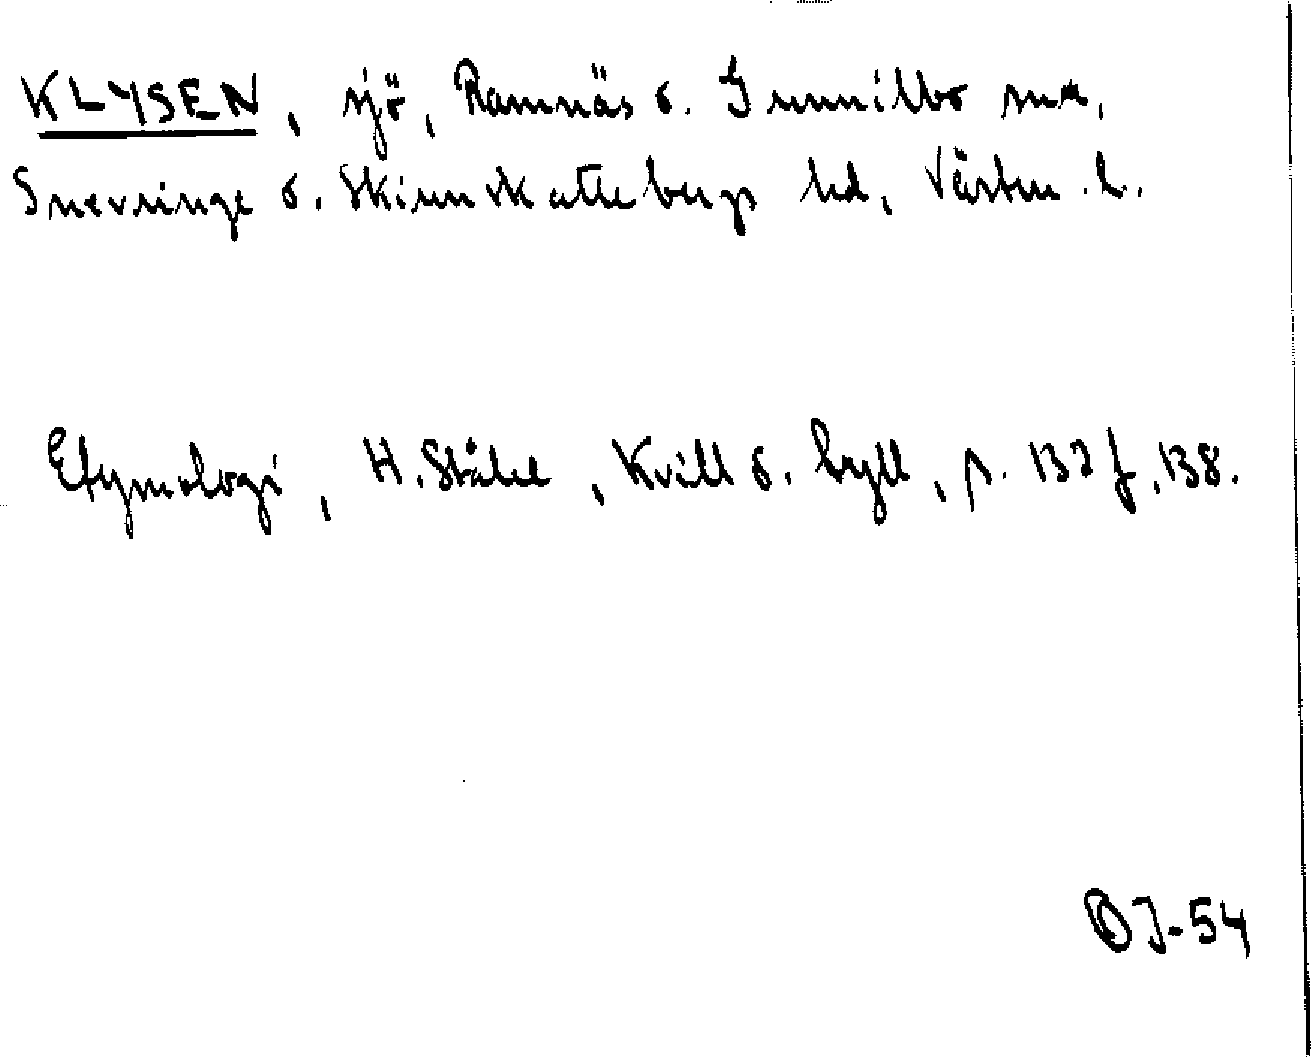 KLYSEN, sjö, Ramnäs o. Gunnilbo snr,
Snevringe o. Skinnskattebergs hd, Västm. l.
Etymologi, H. Ståhl, Kvill o. hyll, s. 132 f, 138.
OJ-54